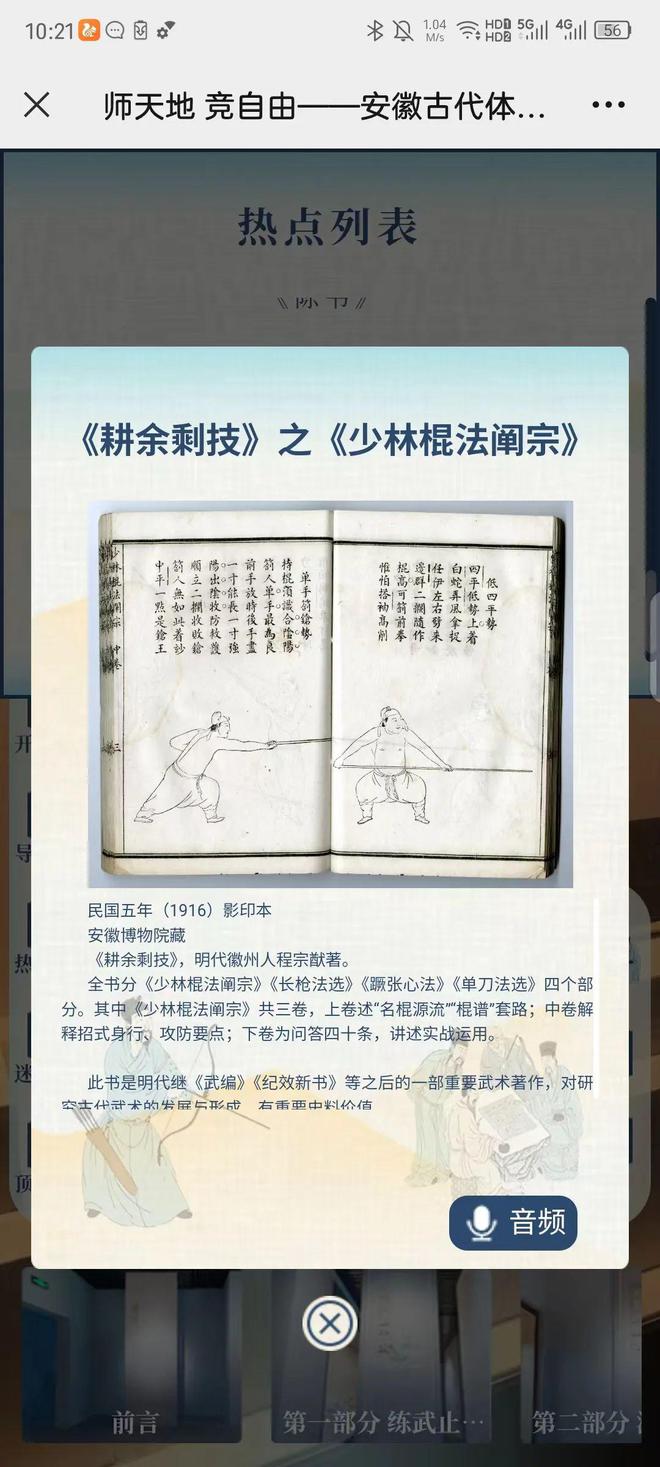 10:21
1.04 M/s
HD1 HD2 5G 4G 56
师天地 竞自由——安徽古代体…
热点列表
《耕余剩技》之《少林棍法阐宗》
低四平勢
四平低勢上着
白蛇弄風拿捉
任伊左右劈来
邊群二攔随作
棍高可箚前拳
惟怕搭袖高削
單手箚鎗勢
持棍須識合陰陽
箚人單手最為良
前手放時後手盡
一寸能長一寸強
陽出陰收防救護
順立二攔收敗鎗
箚人無如此着妙
中平一點是鎗王
少林棍法闡宗
中卷
三
民国五年（1916）影印本
安徽博物院藏
《耕余剩技》，明代徽州人程宗猷著。
全书分《少林棍法阐宗》《长枪法选》《蹶张心法》《单刀法选》四个部
分。其中《少林棍法阐宗》共三卷，上卷述“名棍源流”“棍谱”套路；中卷解
释招式身行、攻防要点；下卷为问答四十条，讲述实战运用。
此书是明代继《武编》《纪效新书》等之后的一部重要武术著作，对研
究古代武术的发展与形成，有重要史料价值
音频
开
导
热
迷
顶
前言
第一部分 练武止…
第二部分